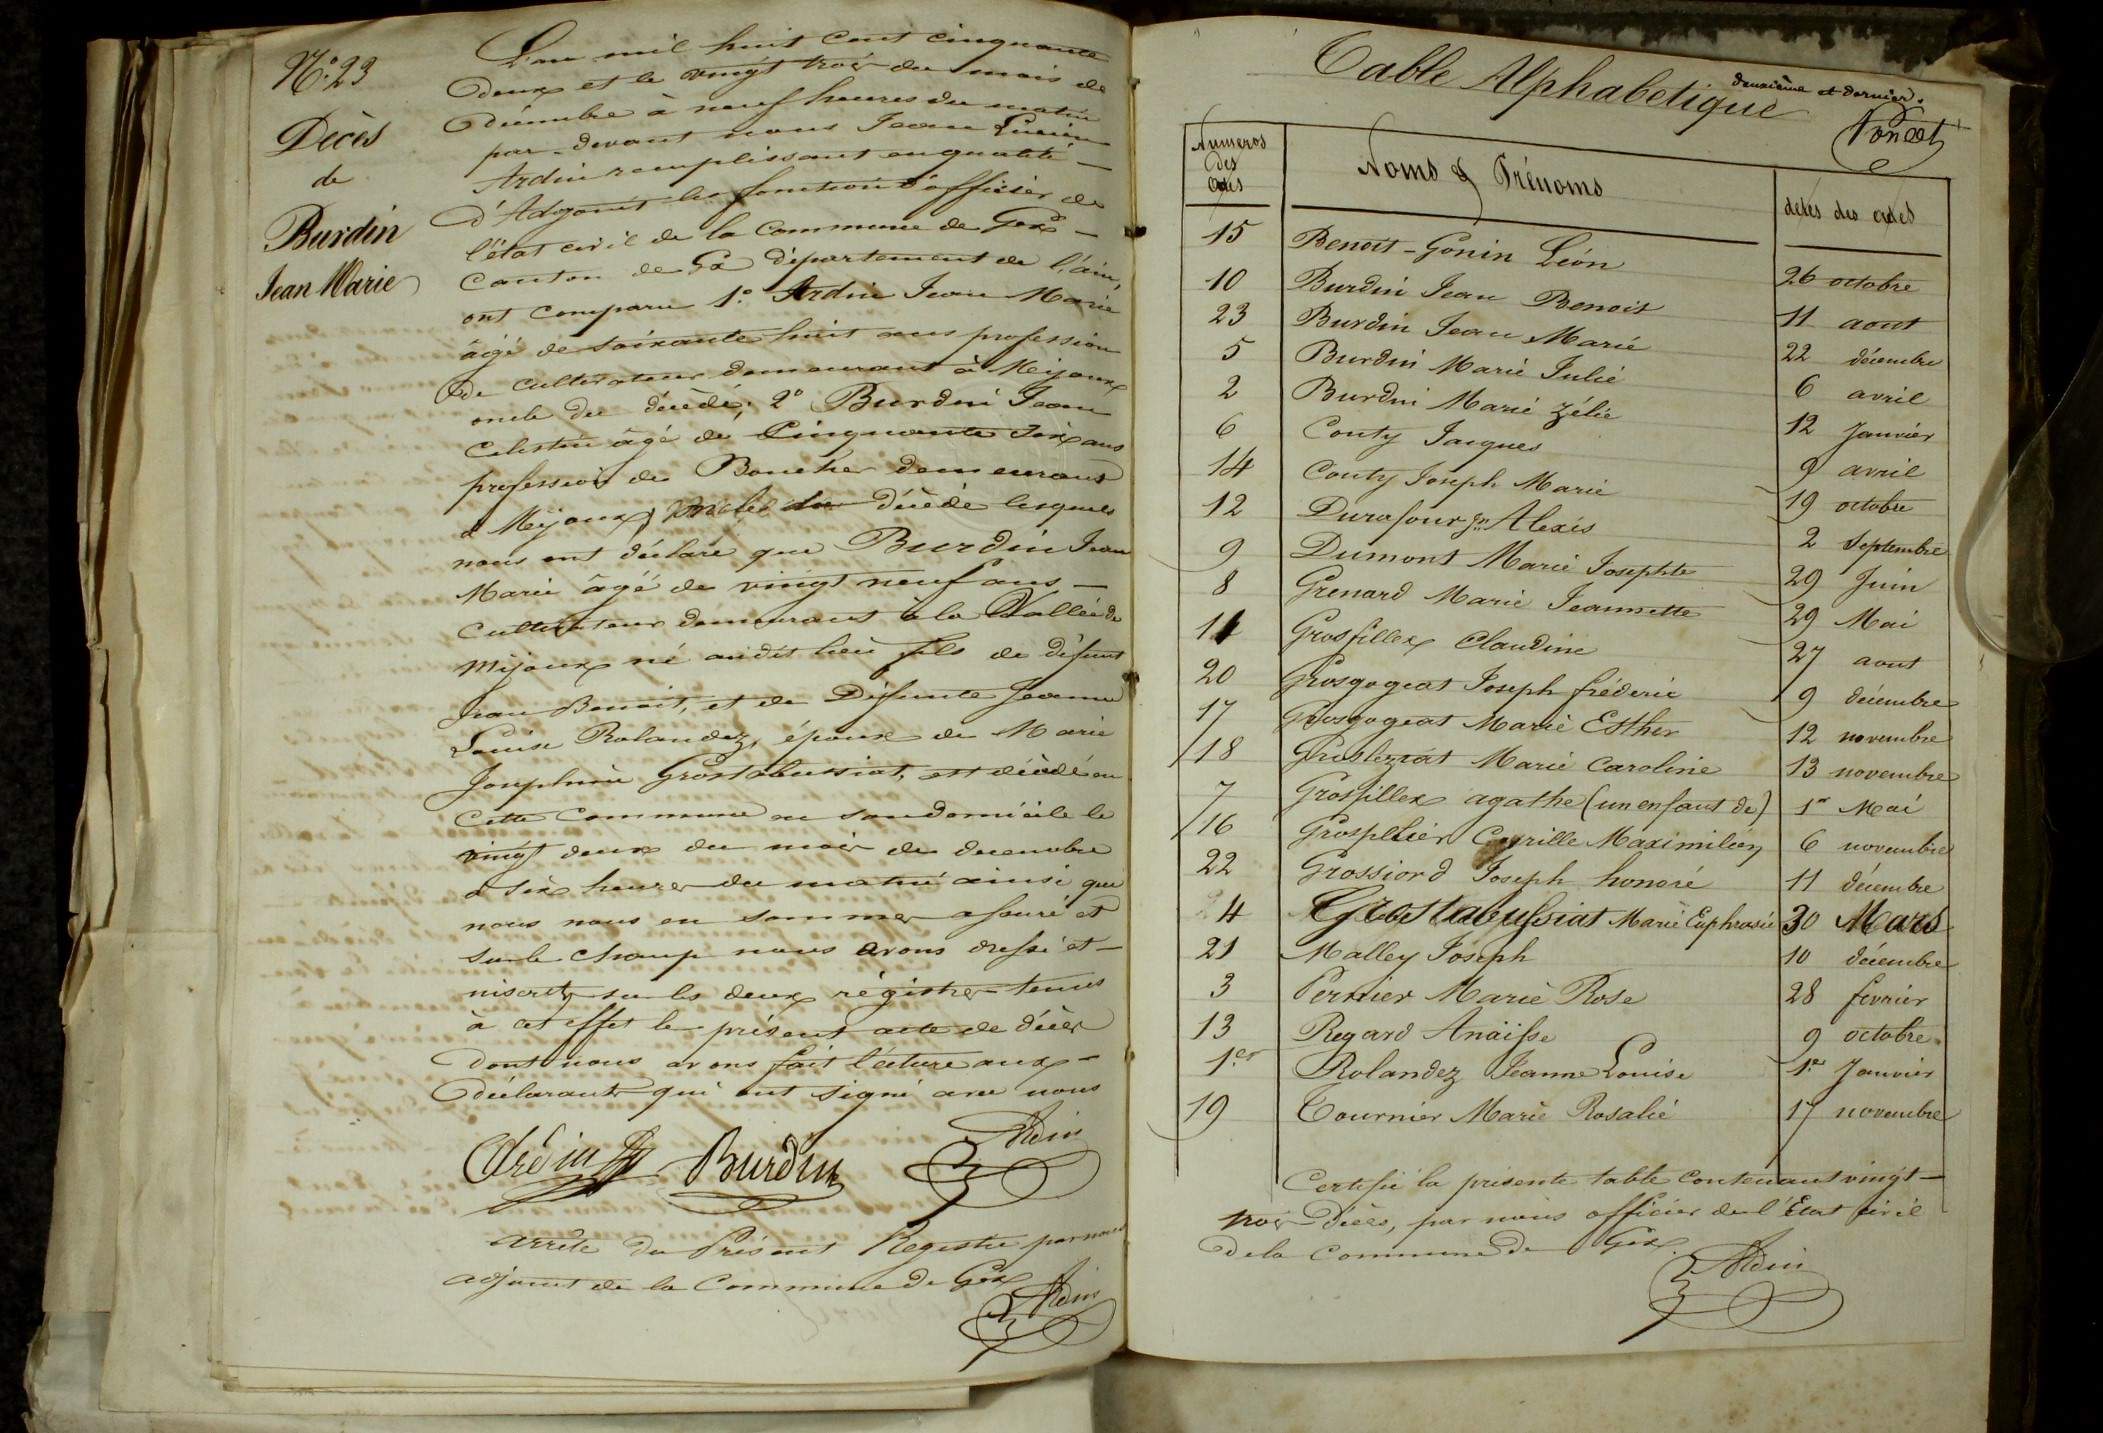 N.° 23
Décès
de
Burdin
Jean Marie
L'an mil huit cent cinquante
deux et le vingt trois du mois de
décembre à neuf heures du matin
par-devant nous Jean Lucien
Ardin remplissant en qualité
d'Adjoint les fonctions d'officier de
l'état civil de la commune de Gex
Canton de Gex département de l'ain,
ont comparu 1.° Ardin Jean Marie
âgé de soixante huit ans profession
de cultivateur demeurant à Mijoux
oncle du décédé; 2° Burdin Jean
Celestin âgé de Cinquante six ans
profession de Boucher demeurant
à Mijoux, oncle du décédé lesquels
nous ont déclaré que Burdin Jean
Marie âgé de vingt neuf ans
cultivateur demeurant à la Vallée de
Mijoux né audit lieu fils de défunt
Jean Benoit, et de Défunte Jeanne
Louise Rolandez, époux de Marie
Josephine Grostabussiat, est décédé en
cette commune en son domicile le
vingt deux du mois de decembre
à six heures du matin ainsi que
nous nous en sommes assuré et
sur le champ nous avons dressé et
inscrit sur les deux régistres tenus
à cet effet le présent acte de décès
dont nous avons fait lecture aux
déclarants qui ont signé avec nous
Ardin Burdin Ardin
arrêté du Présent Registre par nous
adjoint de la Commune de Gex
Ardin
Table Alphabetique
deuxième et dernier.
Poncet
Numeros des actes Noms & Prénoms dates des actes
15 Benoit-Gonin Léon 26 octobre
10 Burdin Jean Benoit 11 aout
23 Burdin Jean Marie 22 décembre
5 Burdin Marie Julie 6 avril
2 Burdin Marie Zélie 12 Janvier
6 Conty Jacques 9 avril
14 Conty Joseph Marie 19 octobre
12 Durafour Jn Alexis 2 Septembre
9 Dumont Marie Josephte 29 Juin
8 Grenard Marie Jeannette 29 Mai
11 Grosfillex Claudine 27 aout
20 Grosgogeat Joseph fréderic 9 décembre
17 Grosgogeat Marie Esther 12 novembre
18 Groslezíat Marie Caroline 13 novembre
7 Grosfillex agathe (un enfant de) 1er Mai
16 Grospellier Cyrille Maximilien 6 novembre
22 Grossiord Joseph honoré 11 décembre
4 Grostabussiat Marie Euphrasie 30 Mars
21 Malley Joseph 10 décembre
3 Pernier Marie Rose 28 février
13 Regard Anaïsse 9 octobre
1er Rolandez Jeanne Louise 1er Janvier
19 Tournier Marie Rosalie 17 novembre
Certifié la présente table contenant vingt
trois Décès, par nous officier de l'Etat Civil
de la Commune de Gex.
Ardin